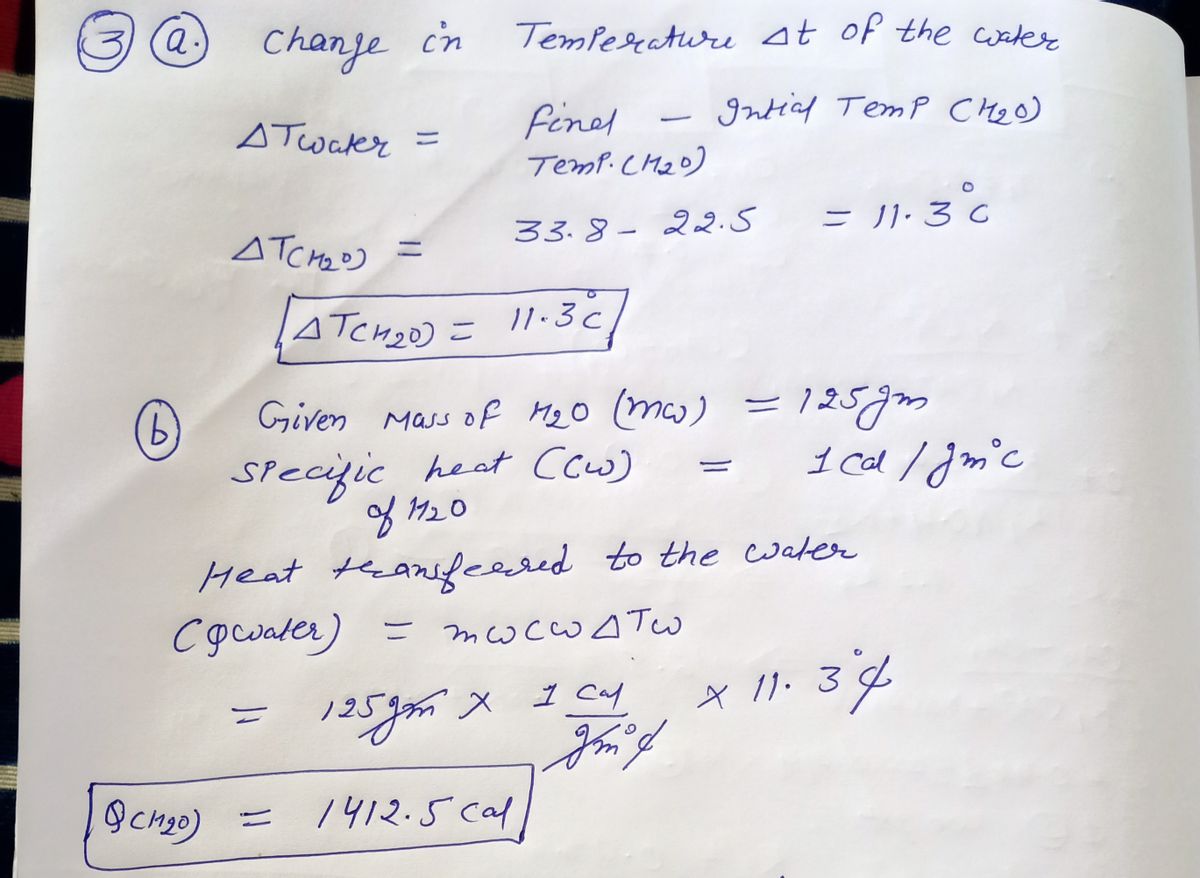 ③ ⓐ. Change in Temperature Δt of the water
ΔTwater = Final Temp. (H2O) - Intial Temp (H2O)
ΔT(H2O) = 33.8 - 22.5 = 11.3°C
ΔT(H2O) = 11.3°C
ⓑ Given Mass of H2O (mw) = 125gm
Specific heat (Cw) of H2O = 1 Cal / gm°C
Heat transfeered to the water
(Qwater) = mwcwΔTw
= 125gm × 1 Cal / gm°C × 11.3°C
Q(H2O) = 1412.5 Cal